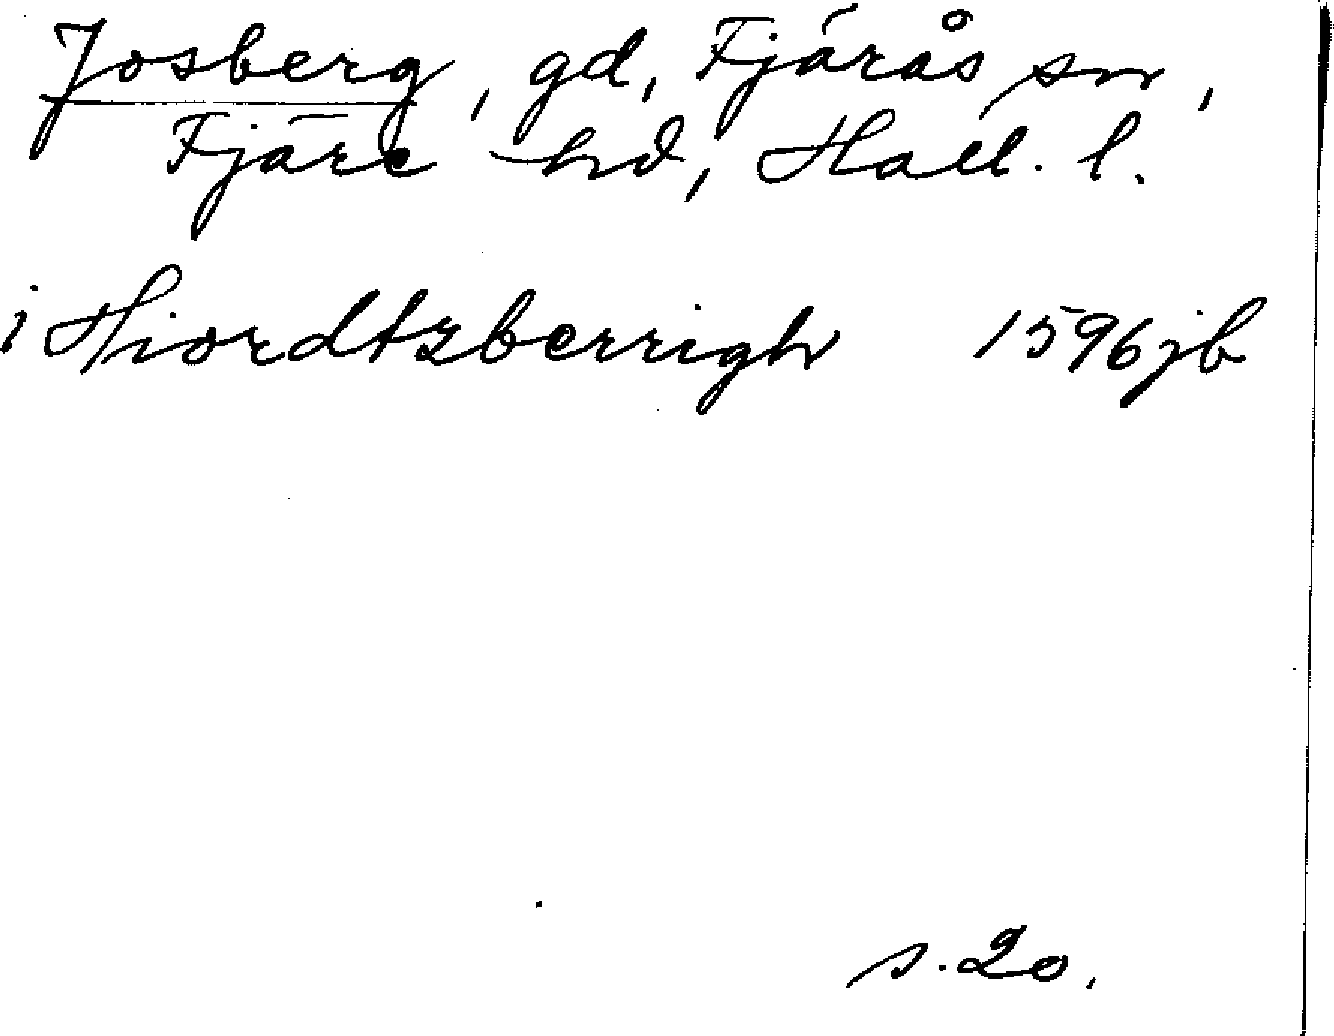 Josberg, gd, Fjärås sn,
Fjäre hd, Hall. l.
i Hiordtzberrigh 1596 jb
s. 20.